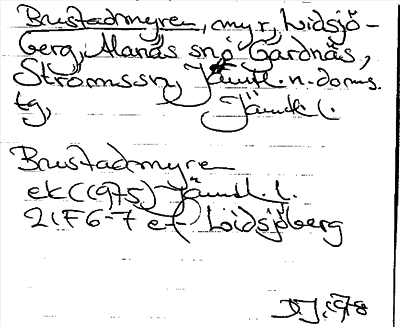 Brustadmyren, myr, Lidsjö-
berg, Alanäs sn o Gärdnäs,
Strömssn, Jämtl. n. doms.
tg, Jämtl l.
Brustadmyre
ek (1975) Jämtl. l.
21F 6-7 e-f Loidsjöberg
1978